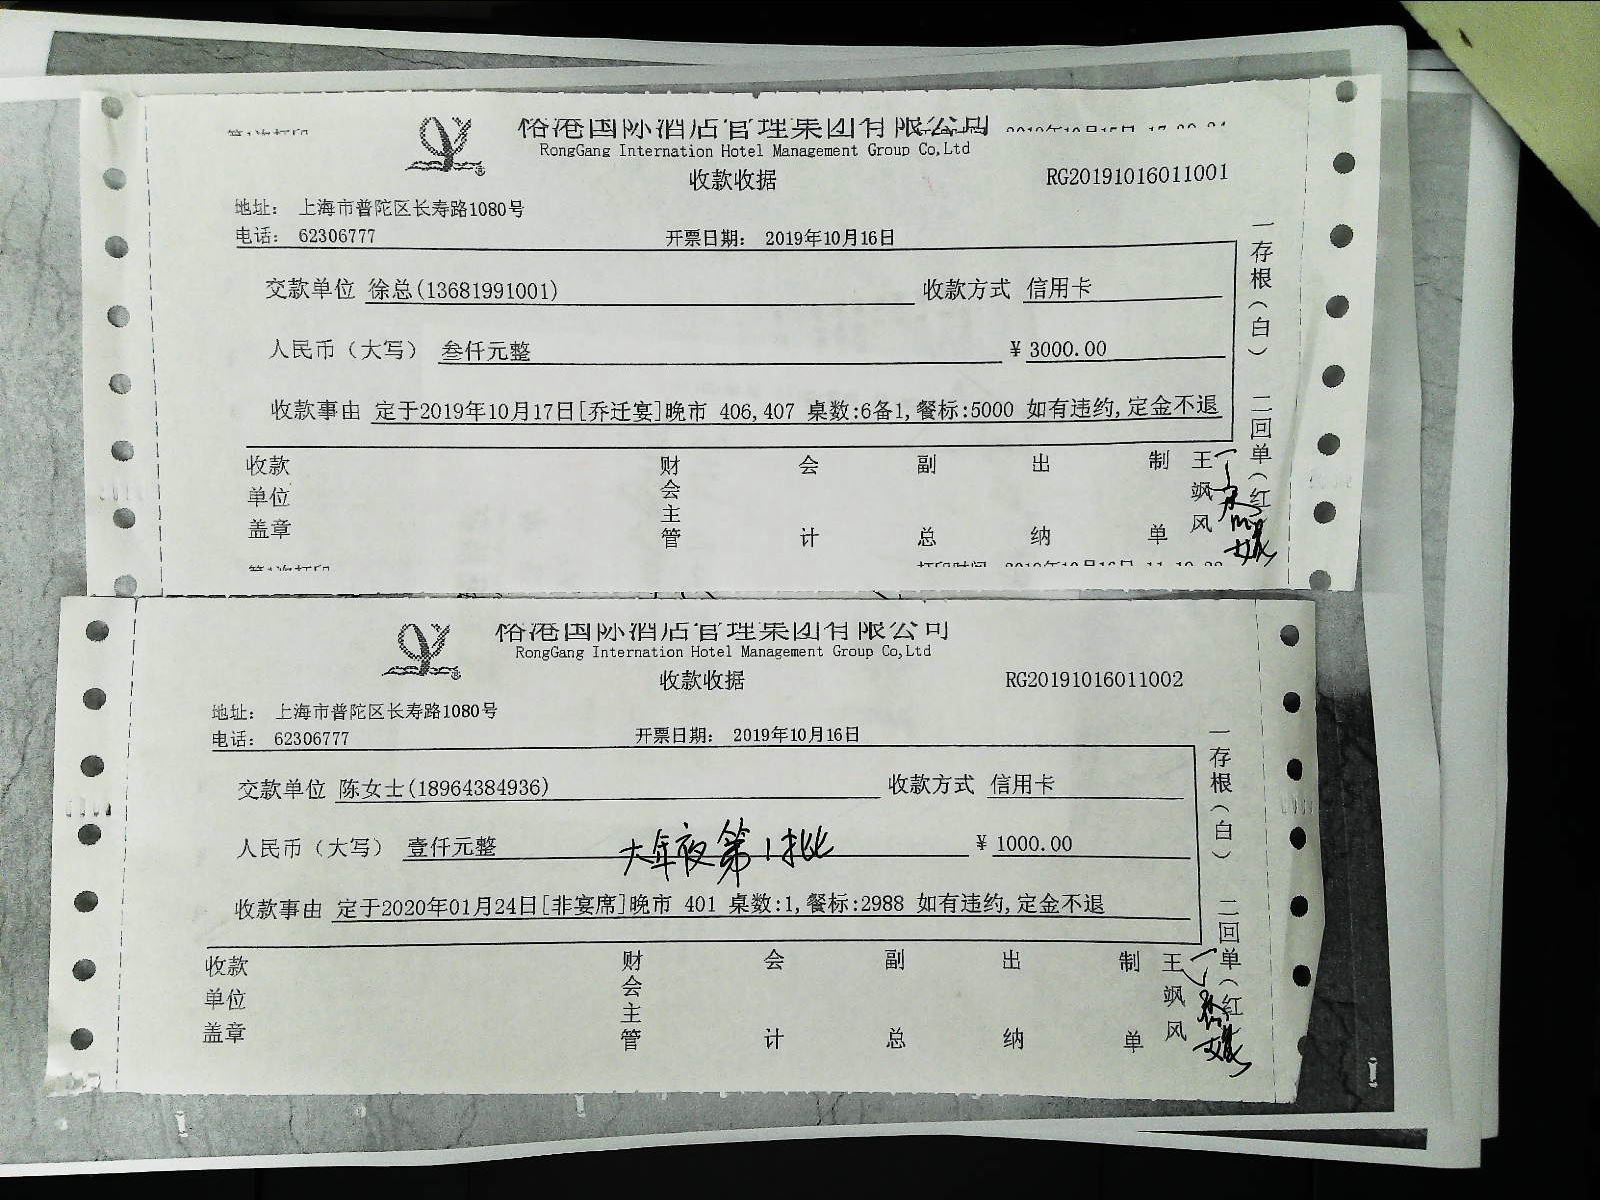 榕港国际酒店管理集团有限公司
RongGang Internation Hotel Management Group Co,Ltd
收款收据 RG20191016011001
地址： 上海市普陀区长寿路1080号
电话： 62306777 开票日期： 2019年10月16日
交款单位 徐总(13681991001) 收款方式 信用卡
人民币（大写） 叁仟元整 ¥ 3000.00
收款事由 定于2019年10月17日[乔迁宴]晚市 406,407 桌数:6备1,餐标:5000 如有违约,定金不退
收款单位盖章 财会主管 会计 副总 出纳 制单 王飒风
一存根（白） 二回单（红
榕港国际酒店管理集团有限公司
RongGang Internation Hotel Management Group Co,Ltd
收款收据 RG20191016011002
地址： 上海市普陀区长寿路1080号
电话： 62306777 开票日期： 2019年10月16日
交款单位 陈女士(18964384936) 收款方式 信用卡
人民币（大写） 壹仟元整 大年夜第1批 ¥ 1000.00
收款事由 定于2020年01月24日[非宴席]晚市 401 桌数:1,餐标:2988 如有违约,定金不退
收款单位盖章 财会主管 会计 副总 出纳 制单 王飒风
一存根（白） 二回单（红